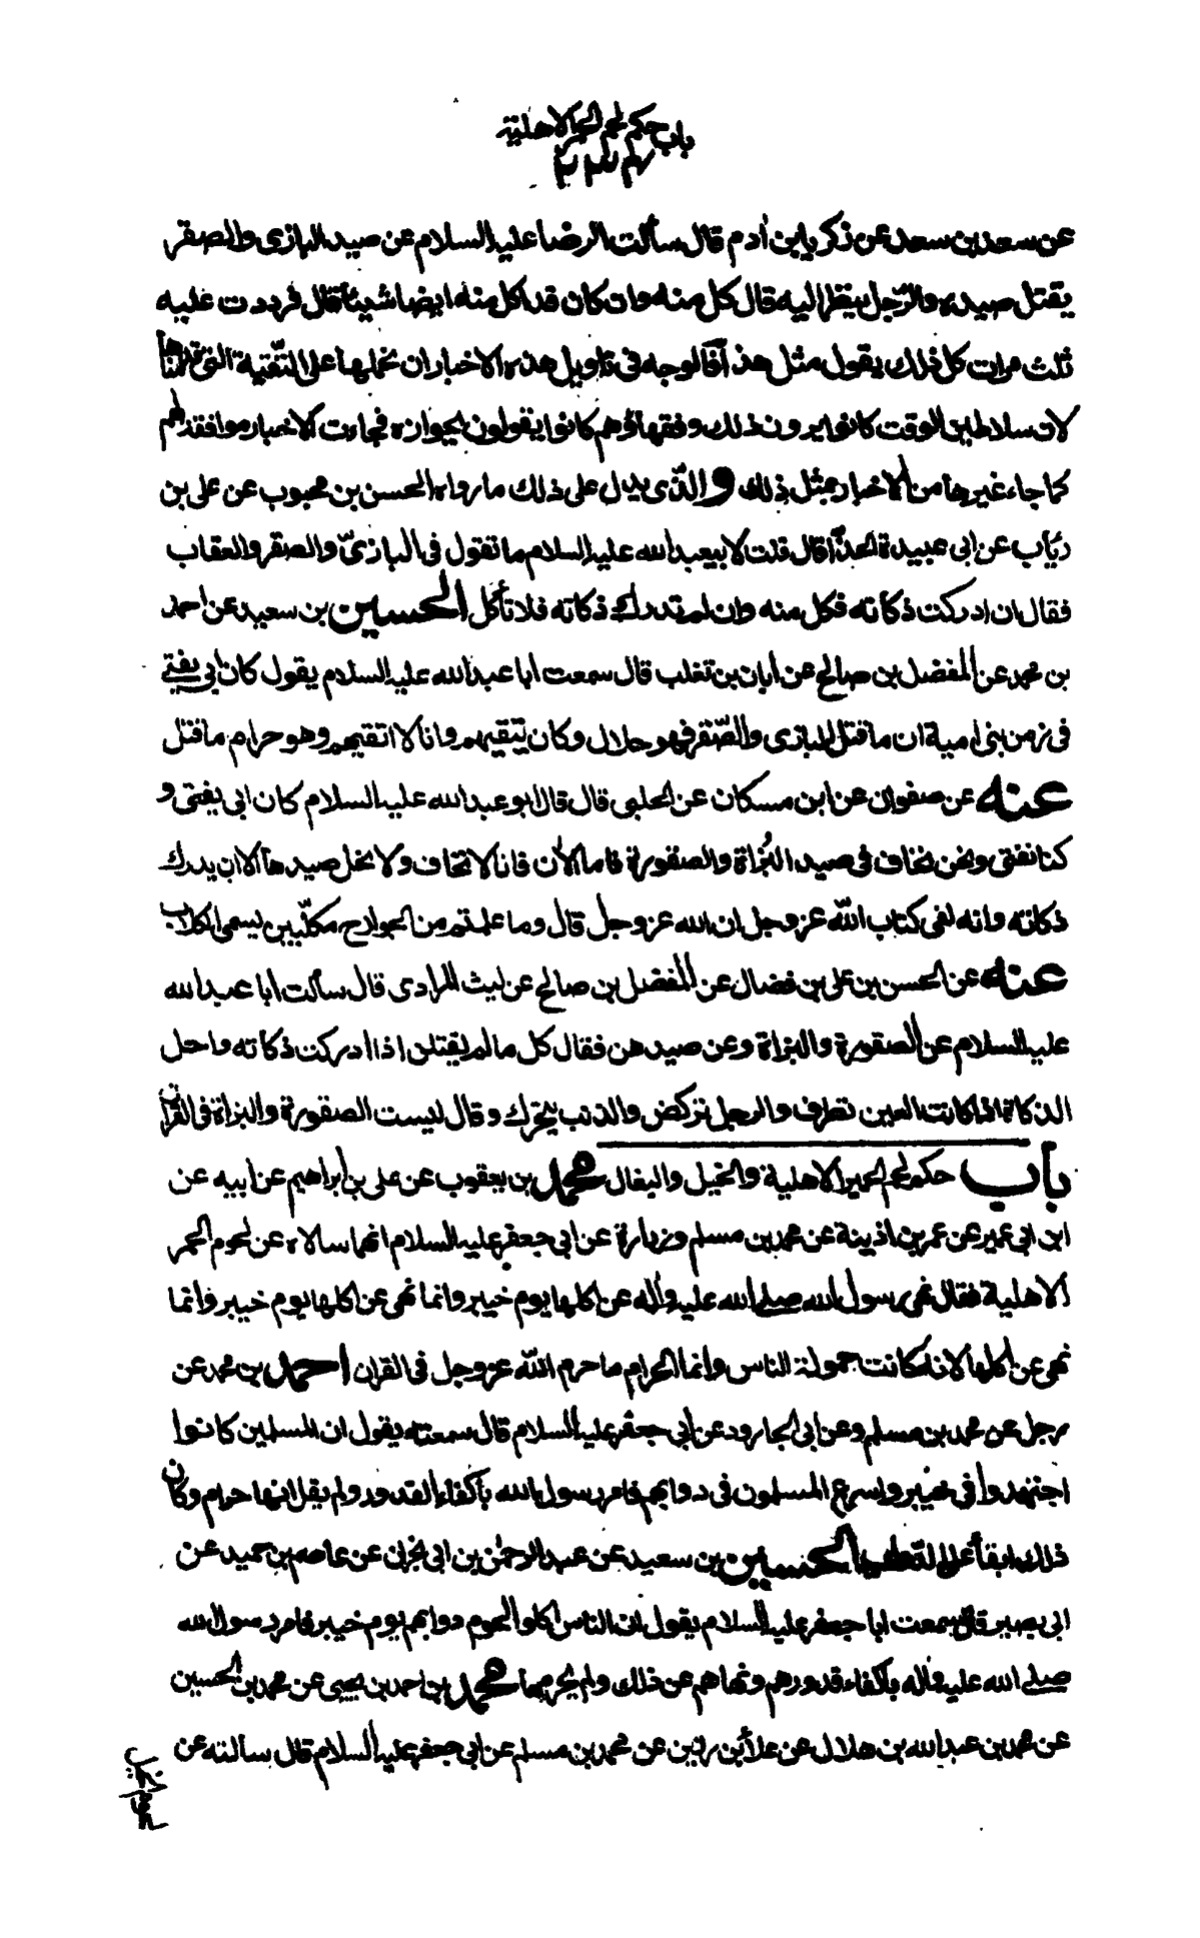 باب حكم لحم الحمر الاهلية
عن سعد بن سعد عن زكريا بن ادم قال سألت الرضا عليه السلام عن صيد البازى والصقر
يقتل صيده والرّجل ينظر اليه قال كل منه وان كان قد اكل منه ايضا شيئا قال فرددت عليه
ثلث مرات كل ذلك يقول مثل هذا فالوجه فى تاويل هذه الاخبار ان نحملها على التّقية التى قدمناها
لان سلاطين الوقت كانوا يرون ذلك وفقهاؤهم كانوا يقولون بجوازه فجاءت الاخبار موافقة لهم
كما جاء غيرها من الاخبار بمثل ذلك والّذى يدل على ذلك ما رواه الحسن بن محبوب عن على بن
رئاب عن ابى عبيدة الحذّاء قال قلت لابيعبدالله عليه السلام ما تقول فى البازىّ والصقر والعقاب
فقال ان ادركت ذكاته فكل منه وان لم تدرك ذكاته فلا تأكل الحسين بن سعيد عن احمد
بن محمد عن المفضل بن صالح عن ابان بن تغلب قال سمعت ابا عبدالله عليه السلام يقول كان ابي يفتي
فى زمن بنى امية ان ما قتل البازى والصّقر فهو حلال وكان يتّقيهم وانا لا اتقيهم وهو حرام ما قتل
عنه عن صفوان عن ابن مسكان عن الحلبى قال قال ابو عبدالله عليه السلام كان ابى يفتى و
كنا نفتى ونحن نخاف فى صيد البُزاة والصقورة فاما الآن فانا لا نخاف ولا يحل صيدها الا ان يدرك
ذكاته وانه لفى كتاب الله عز وجل ان الله عز وجل قال وما علمتم من الجوارح مكلّبين يسمى الكلاب
عنه عن الحسن بن على بن فضال عن المفضل بن صالح عن ليث المرادى قال سألت ابا عبدالله
عليه السلام عن الصقورة والبزاة وعن صيدهن فقال كل ما لم يقتلن اذا ادركت ذكاته واخل
الذكاة اذا كانت العين تطرف والرجل تركض والذنب يتحرك وقال ليست الصقورة والبزاة فى القران
باب حكم لحم الحمير الاهلية والخيل والبغال محمد بن يعقوب عن على بن ابراهيم عن ابيه عن
ابن ابى عمير عن عمر بن اذينة عن محمد بن مسلم وزرارة عن ابى جعفر عليه السلام انهما سالاه عن لحوم الحمر
الاهلية فقال نهى رسول الله صلى الله عليه واله عن اكلها يوم خيبر وانما نهى عن اكلها يوم خيبر وانما
نهى عن اكلها لانها كانت حمولة الناس وانما الحرام ما حرم اللّه عز وجل فى القران احمد بن محمد عن
رجل عن محمد بن مسلم وعن ابى الجارود عن ابى جعفر عليه السلام قال سمعته يقول ان المسلمين كانوا
اجتهدوا فى خيبر واسرع المسلمون فى دوابهم فامر رسول الله بأكفاء القدور ولم يقل انها حرام وكان
ذلك ابقاء على الدّواب الحسين بن سعيد عن عبد الرحمٰن بن ابى نجران عن عاصم بن حميد عن
ابى بصير قال سمعت ابا جعفر عليه السلام يقول ان الناس اكلوا لحوم دوابهم يوم خيبر فامر رسول الله
صلى الله عليه واله بأكفاء قدورهم ونهاهم عن ذلك ولم يحرمها محمد بن احمد بن يحيى عن محمد بن الحسين
عن محمد بن عبدالله بن هلال عن علاء بن رزين عن محمد بن مسلم عن ابى جعفر عليه السلام قال سالته عن